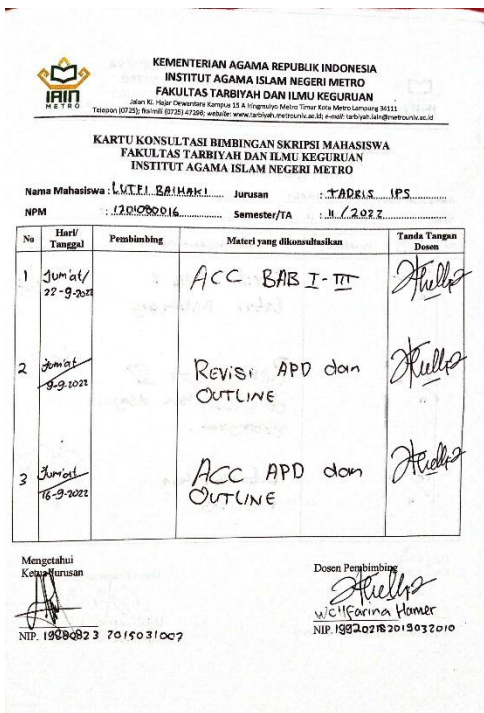 IAIN
METRO
KEMENTERIAN AGAMA REPUBLIK INDONESIA
INSTITUT AGAMA ISLAM NEGERI METRO
FAKULTAS TARBIYAH DAN ILMU KEGURUAN
Jalan Ki. Hajar Dewantara Kampus 15 A Iringmulyo Metro Timur Kota Metro Lampung 34111
Telepon (0725); faksimili (0725) 47296; website: www.tarbiyah.metrouniv.ac.id; e-mail: tarbiyah.iain@metrouniv.ac.id
KARTU KONSULTASI BIMBINGAN SKRIPSI MAHASISWA
FAKULTAS TARBIYAH DAN ILMU KEGURUAN
INSTITUT AGAMA ISLAM NEGERI METRO
Nama Mahasiswa : LUTFI BAIHAKI Jurusan : TADRIS IPS
NPM : 1201090016 Semester/TA : 11 / 2022
No Hari/ Tanggal Pembimbing Materi yang dikonsultasikan Tanda Tangan Dosen
1 Jum'at/ ACC BAB I - III
2 Jum'at 9-9-2022 Revisi APD dan OUTLINE
3 Jum'at 16-9-2022 ACC APD dan OUTLINE
Mengetahui
Ketua Jurusan
NIP. 2015031007
Dosen Pembimbing
Wellfarina Hamer
NIP. 199202182019032010